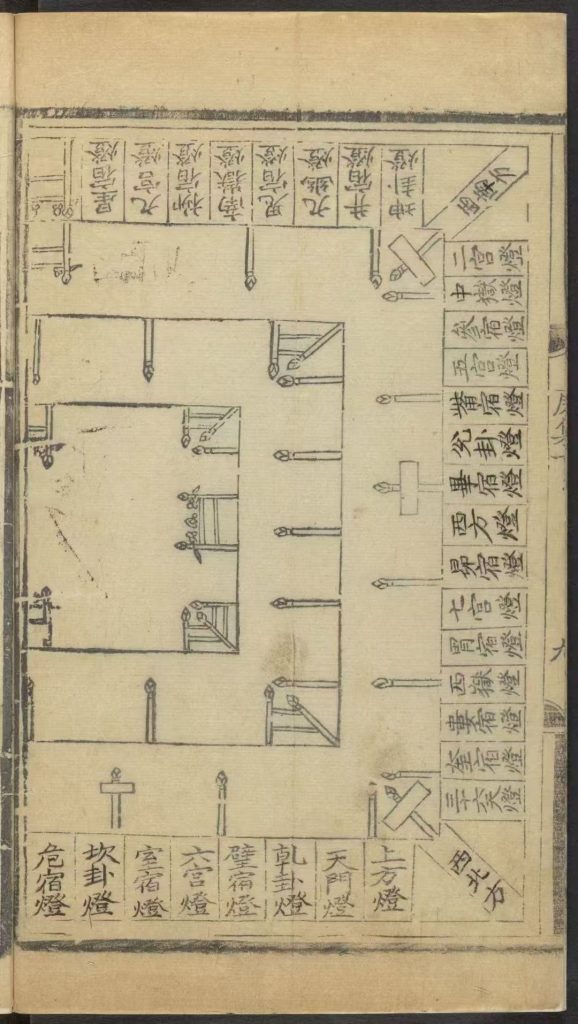 坤卦燈
井宿燈
九幽燈
鬼宿燈
南嶽燈
柳宿燈
九宮燈
星宿燈
西南方
二宮燈
中嶽燈
參宿燈
五宮燈
觜宿燈
兌卦燈
畢宿燈
西方燈
昴宿燈
七宮燈
胃宿燈
西嶽燈
婁宿燈
奎宿燈
西北方
上方燈
天門燈
乾卦燈
壁宿燈
六宮燈
室宿燈
坎卦燈
危宿燈